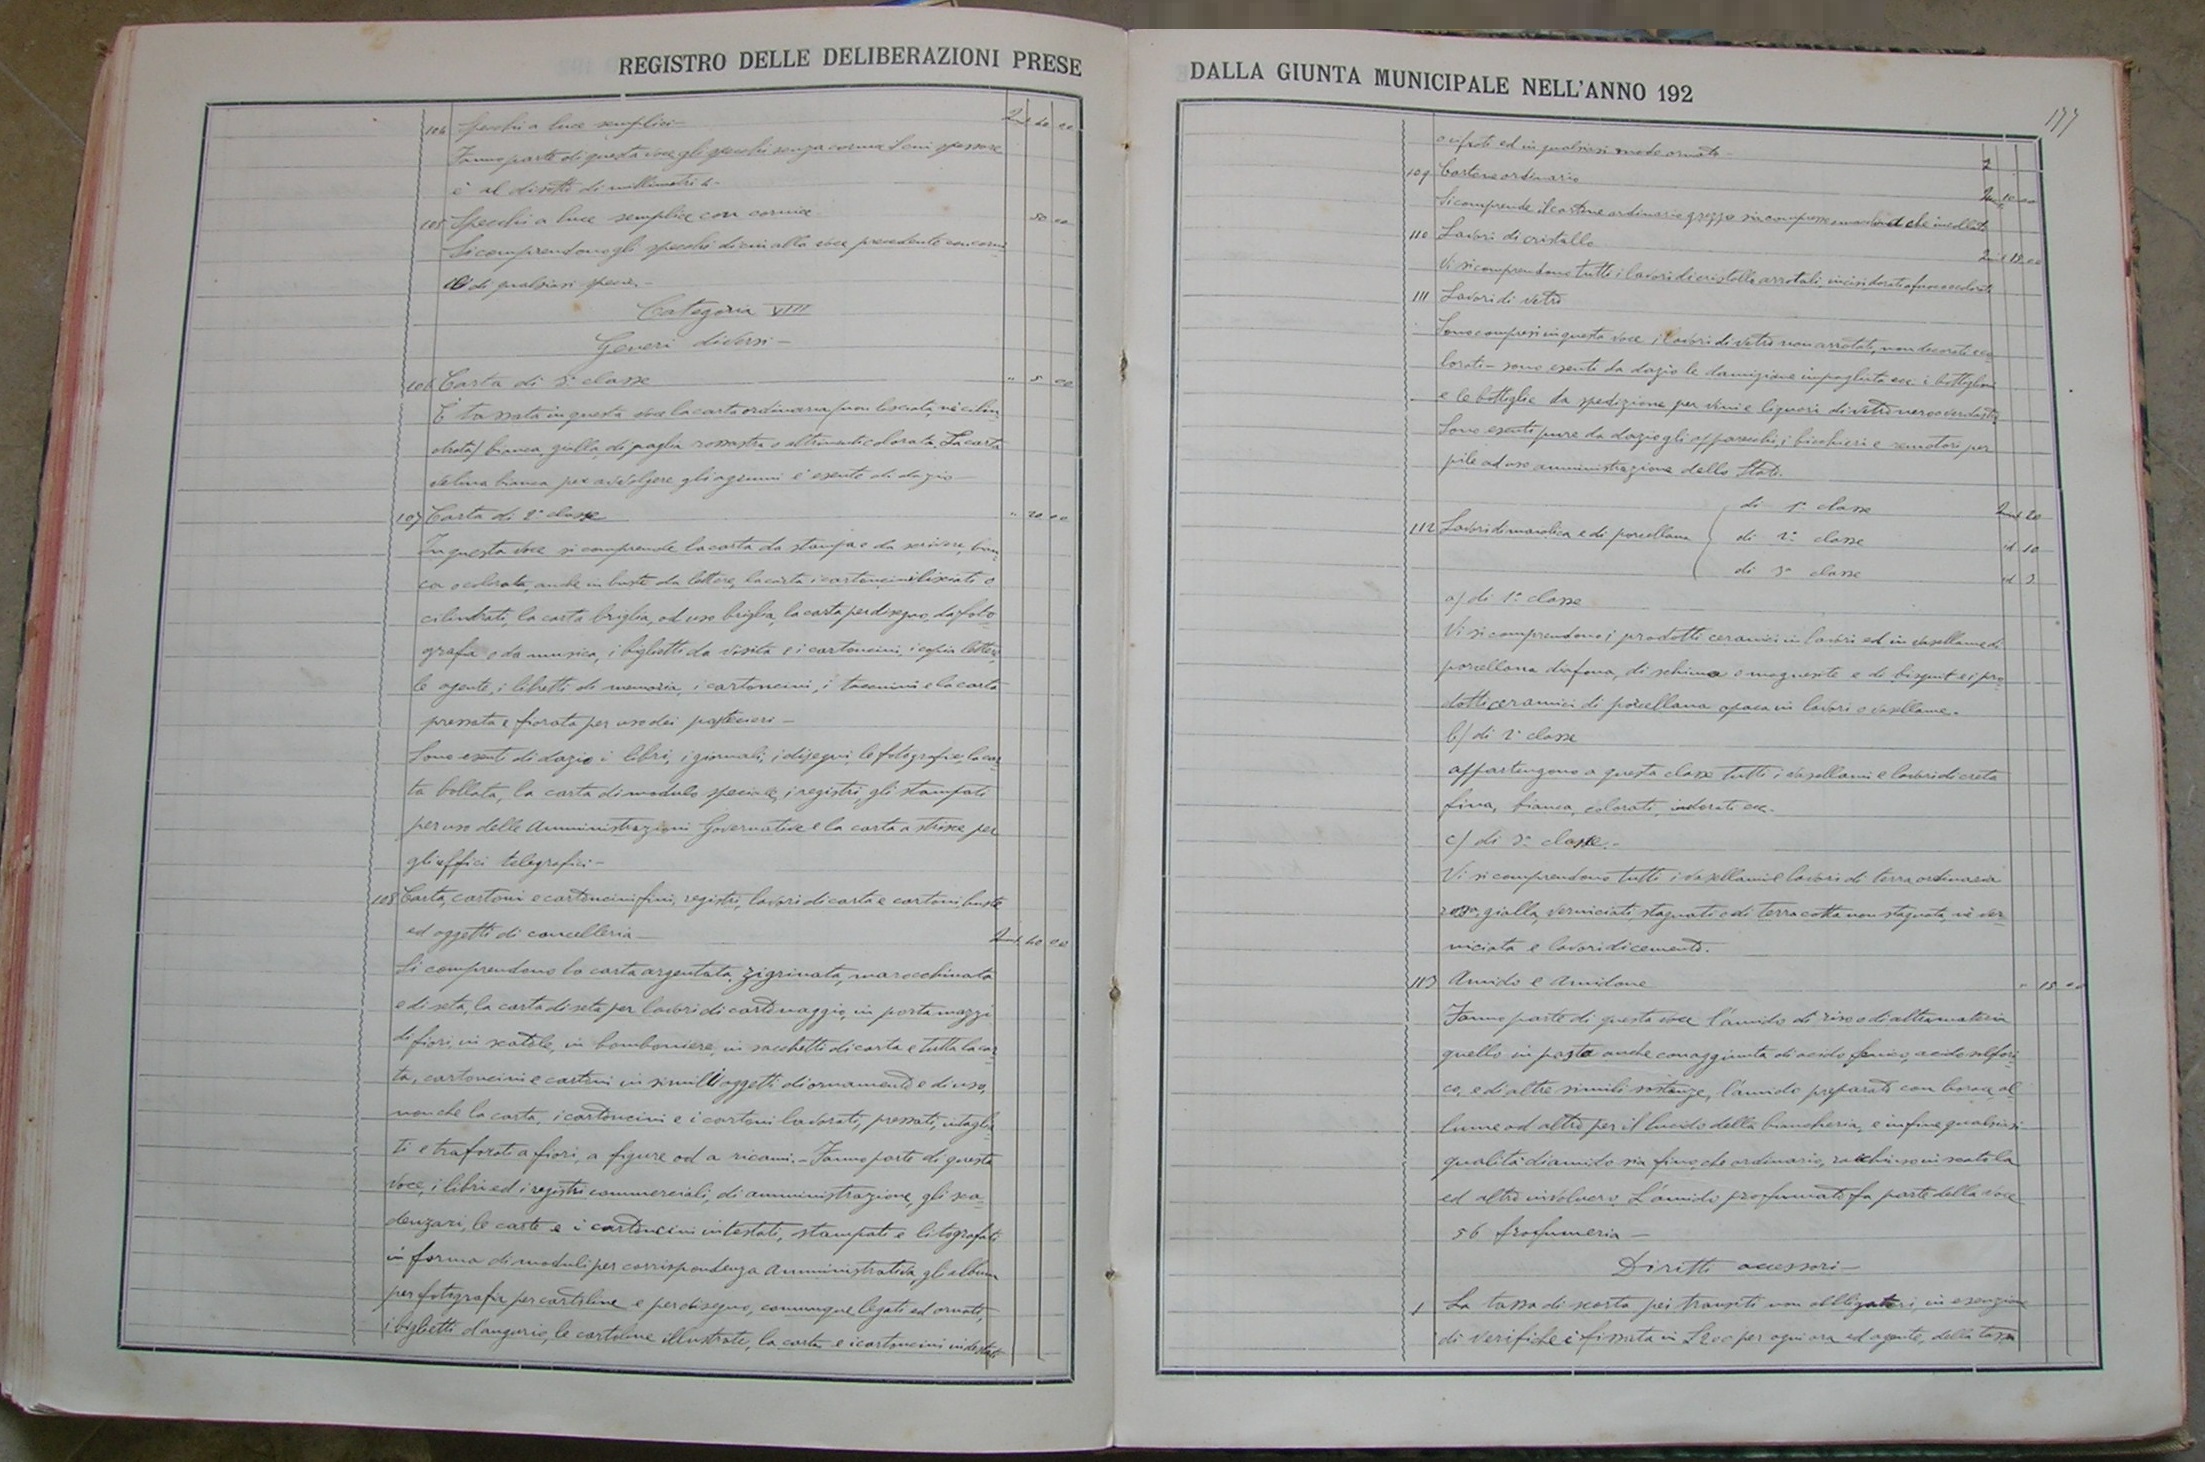 REGISTRO DELLE DELIBERAZIONI PRESE
104 Specchi a luce semplici - 40 00
Fanno parte di questa voce gli specchi senza cornice il cui spessore
è al disotto di millimetri 4.
105 Specchi a luce semplice con cornice. 50 00
Si comprendono gli specchi di cui alla voce precedente con corni
di qualsiasi specie. -
Categoria VIII
Generi diversi -
106 Carta di 3ª classe " 5 00
E' tassata in questa voce la carta ordinaria (non lisciata, nè cilin
drata) bianca, gialla, di paglia rossastra o altrimenti colorata. La carta
velina bianca per avvolgere gli agrumi è esente di dazio -
107 Carta di 2ª classe " 20 00
In questa voce si comprende la carta da stampa e da scrivere, bian
ca o colorata, anche in buste da lettere, la carta i cartoncini lisciati o
cilindrati, la carta briglia, od uso briglia, la carta per disegno, da foto
grafia e da musica, i biglietti da visita e i cartoncini, i copia lettere,
le agente, i libretti di memoria, i cartoncini, i taccuini e la carta
pressata e fiorata per uso dei pasticcieri -
Sono esenti di dazio i libri, i giornali, i disegni le fotografie, la car
ta bollata, la carta di modulo speciale, i registri, gli stampati
per uso delle Amministrazioni Governative e la carta a strisce per
gli uffici telegrafici -
108 Carta, cartoni e cartoncini fini, registri, lavori di carta e cartoni buste
ed oggetti di cancelleria - 40 00
Si comprendono la carta argentata, zigrinata, marocchinata
e di seta, la carta di seta per lavori di cartonaggio, in porta mazzi
di fiori, in scatole, in bomboniere, in sacchetti di carta e tutta la car
ta, cartoncini e cartoni in simili oggetti di ornamento e di uso,
nonche la carta, i cartoncini e i cartoni lavorati, pressati, intaglia
ti e traforati a fiori, a figure od a ricami. - Fanno parte di questa
voce, i libri ed i registri commerciali, di amministrazione, gli sca
denzari, le carte e i cartoncini intestati, stampati e litografati
in forma di moduli per corrispondenza Amministrativa, gli album
per fotografia per cartoline e per disegno, comunque legati ed ornati,
i biglietti d'augurio, le cartoline illustrate, la carta e i cartoncini
DALLA GIUNTA MUNICIPALE NELL'ANNO 192
177
o cifrati ed in qualsiasi modo ornati -
109 Cartone ordinario 10 00
Si comprende il cartone ordinario grezzo sia compresso
110 Lavori di cristallo
Vi si comprendono tutti i lavori di cristallo arrotati, incisi, dorati
111 Lavori di vetro
Sono compresi in questa voce i lavori di vetro non arrotati, non decorati o co
lorati - sono esenti da dazio le damigiane impagliate ecc. i bottiglioni
e le bottiglie da spedizione per vini e liquori di vetro nero o verdastro
Sono esenti pure da dazio gli apparecchi, i bicchieri e per
pile ad uso amministrazione dello Stato.
di 1ª classe 20
112 Lavori di maiolica e di porcellana di 2ª classe id 10
di 3ª classe id 3
a) di 1ª classe
Vi si comprendono i prodotti ceramici in lavori ed in vasellame di
porcellana diafana, di schiuma o magnesite e di bisquit e i pro
dotti ceramici di porcellana opaca in lavori o vasellame.
b) di 2ª classe
appartengono a questa classe tutti i vasellami e lavori di creta
fina, bianca, colorati, indorati ecc.
c) di 3ª classe. -
Vi si comprendono tutti i vasellami e lavori di terra ordinaria
rossa, gialla, verniciati, stagnati e di terra cotta non stagnata, nè ver
niciata e lavori di cemento.
113 Amido e Amidone " 15 00
Fanno parte di questa voce l'amido di riso o di altra materia
quello in pasta anche con aggiunta di acido fenico, acido solfori
co, e di altre simili sostanze, l'amido preparato con borace al
lume od altro per il lucido della biancheria, e infine qualsiasi
qualità di amido sia fino, che ordinario, racchiuso in scatola
ed altro involucro. L'amido profumato fa parte della voce
56 profumeria -
Diritti accessori -
1 La tassa di scorta pei transiti non obbligatori, in esenzione
di verifiche è fissata in per ogni ora ed agente, della tassa